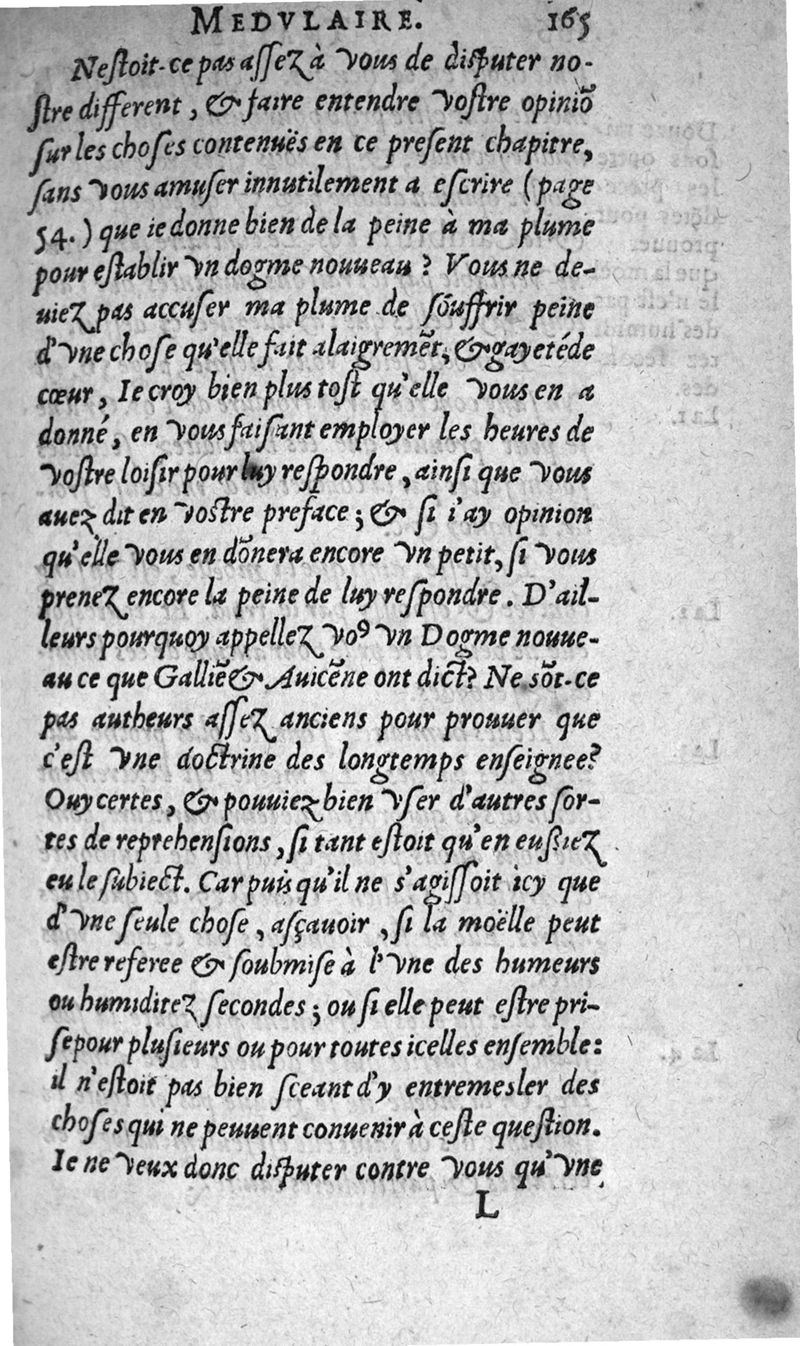 MEDVLAIRE. 165
Neſtoit-ce pas aſſeZ à vous de diſputer no-
ſtre different, & faire entendre voſtre opiniō
ſur les choſes contenuës en ce preſent chapitre,
ſans vous amuſer innutilement a eſcrire (page
54.) que ie donne bien de la peine à ma plume
pour eſtablir vn dogme nouueau ? Vous ne de-
uieZ pas accuſer ma plume de ſouffrir peine
d'vne choſe qu'elle fait alaigremēt, & gayeté de
cœur, Ie croy bien plus toſt qu'elle vous en a
donné, en vous faiſant employer les heures de
voſtre loiſir pour luy reſpondre, ainſi que vous
auez dit en voſtre preface ; & ſi i'ay opinion
qu'elle vous en dōnera encore vn petit, ſi vous
preneZ encore la peine de luy reſpondre. D'ail-
leurs pourquoy appelleZ voꝰ vn Dogme nouue-
au ce que Galliē & Auicēne ont dict? Ne sōt-ce
pas autheurs aſſeZ anciens pour prouuer que
c'eſt vne doctrine des longtemps enſeignee?
Ouy certes, & pouuiez bien vſer d'autres ſor-
tes de reprehenſions, ſi tant eſtoit qu'en euſſieZ
eu le ſubiect. Car puis qu'il ne s'agiſſoit icy que
d'vne ſeule choſe, aſçauoir, ſi la moëlle peut
eſtre referee & ſoubmiſe à l'vne des humeurs
ou humiditeZ ſecondes ; ou ſi elle peut eſtre pri-
ſe pour pluſieurs ou pour toutes icelles enſemble:
il n'eſtoit pas bien ſceant d'y entremesler des
choſes qui ne peuuent conuenir à ceſte queſtion.
Ie ne veux donc diſputer contre vous qu'vne
L